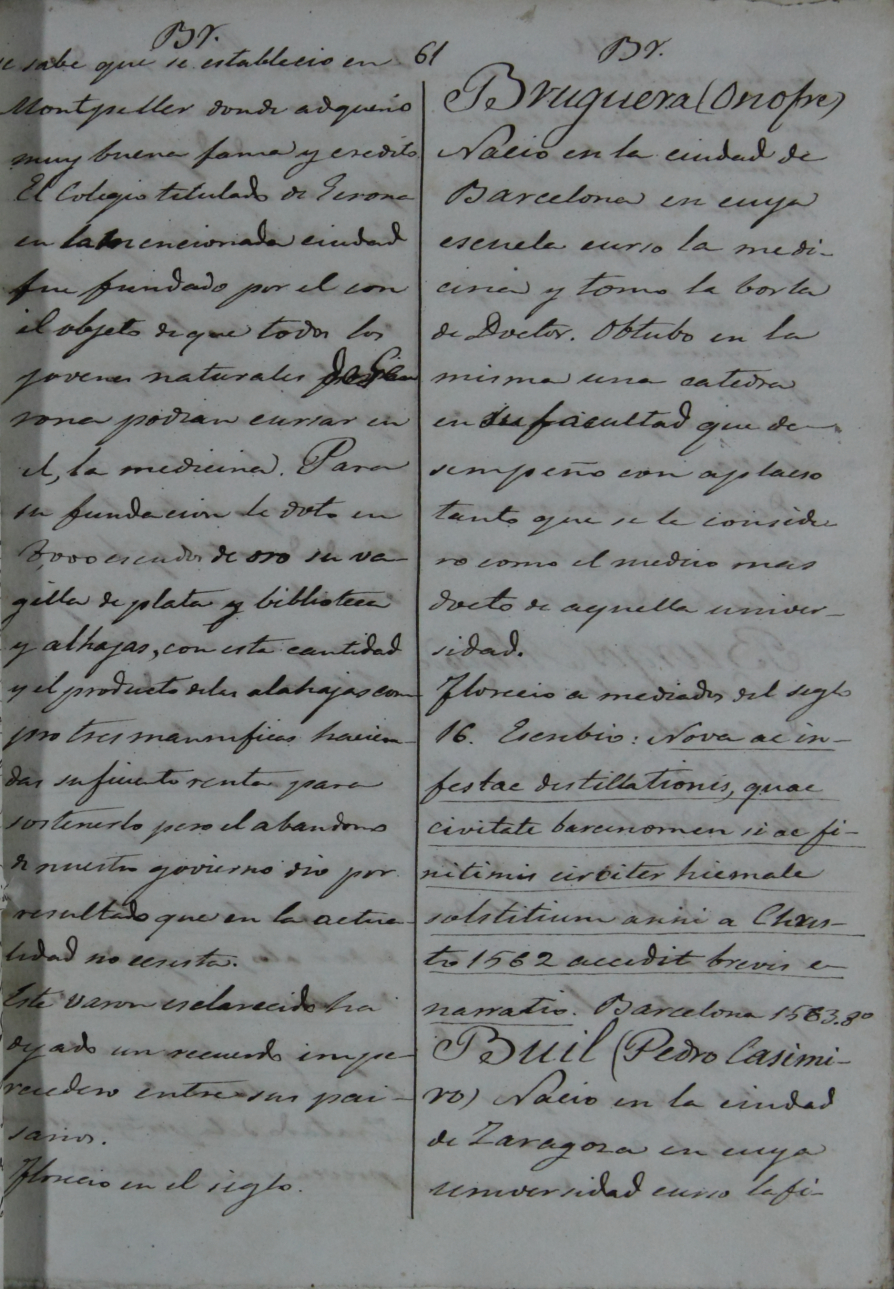 Br.
se sabe que se establecio en
Montpeller donde adquirio
muy buena fama y credito
El Colegio titulado de Gerona
en la mencionada ciudad
fue fundado por el con
el objeto de que todos los
jovenes naturales de Ge
rona podian cursar en
el, la medicina. Para
su fundacion le doto en
3,000 escudos de oro su va-
gilla de plata y biblioteca
y alhajas, con esta cantidad
y el producto de las alahajas com-
pro tres mannificas hacien-
das suficiente renta para
sostenerlo pero el abandono
de nuestro govierno dio por
resultado que en la actua-
lidad no ecsista.
Este varon esclarecido ha
dejado un recuerdo impe-
recedero entre sus pai-
sanos.
Florecio en el siglo.
61
Br.
Bruguera (Onofre)
Nacio en la ciudad de
Barcelona en cuya
escuela curso la medi-
cina y tomo la borla
de Doctor. Obtubo en la
misma una catedra
en su facultad que de-
sempeño con aplauso
tanto que se le conside
ro como el medico mas
docto de aquella univer-
sidad.
Florecio a mediados del siglo
16. Escribio: Nova ac in-
festae destillationis, quae
civitate barcinomen si ac fi-
nitimis circiter hiemale
solstitium anni a Chris-
to 1562 accedit brevis e-
narratio. Barcelona 1563.8º
Buil (Pedro Casimi-
ro) Nacio en la ciudad
de Zaragoza en cuya
universidad curso la fi-